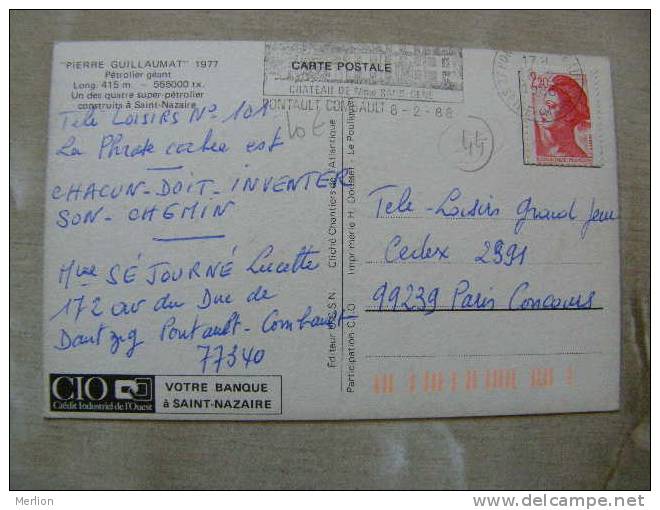 "PIERRE GUILLAUMAT" 1977
Pétrolier géant
Long. 415 m. - 555000 tx.
Un des quatre super-pétrolier
construits à Saint-Nazaire
CARTE POSTALE
CHATEAU DE Mme SANS-GENE
PONTAULT COMBAULT 8-2-88
17 H
2,20
10 €
44
Télé LOISIRS N° 101
La Phrase cachée est
CHACUN-DOIT-INVENTER
SON-CHEMIN
Mme SÉJOURNÉ Lucette
172 av du Duc de
Dantzig Pontault-Combault
77340
Tele-Loisirs Grand Jeu
Cedex 2991
99239 Paris Concours
Cliché Chantiers de l'Atlantique
Participation C.I.O Imprimerie H.
CIO
Crédit Industriel de l'Ouest
VOTRE BANQUE
à SAINT-NAZAIRE
Merlion
www.delcampe.net